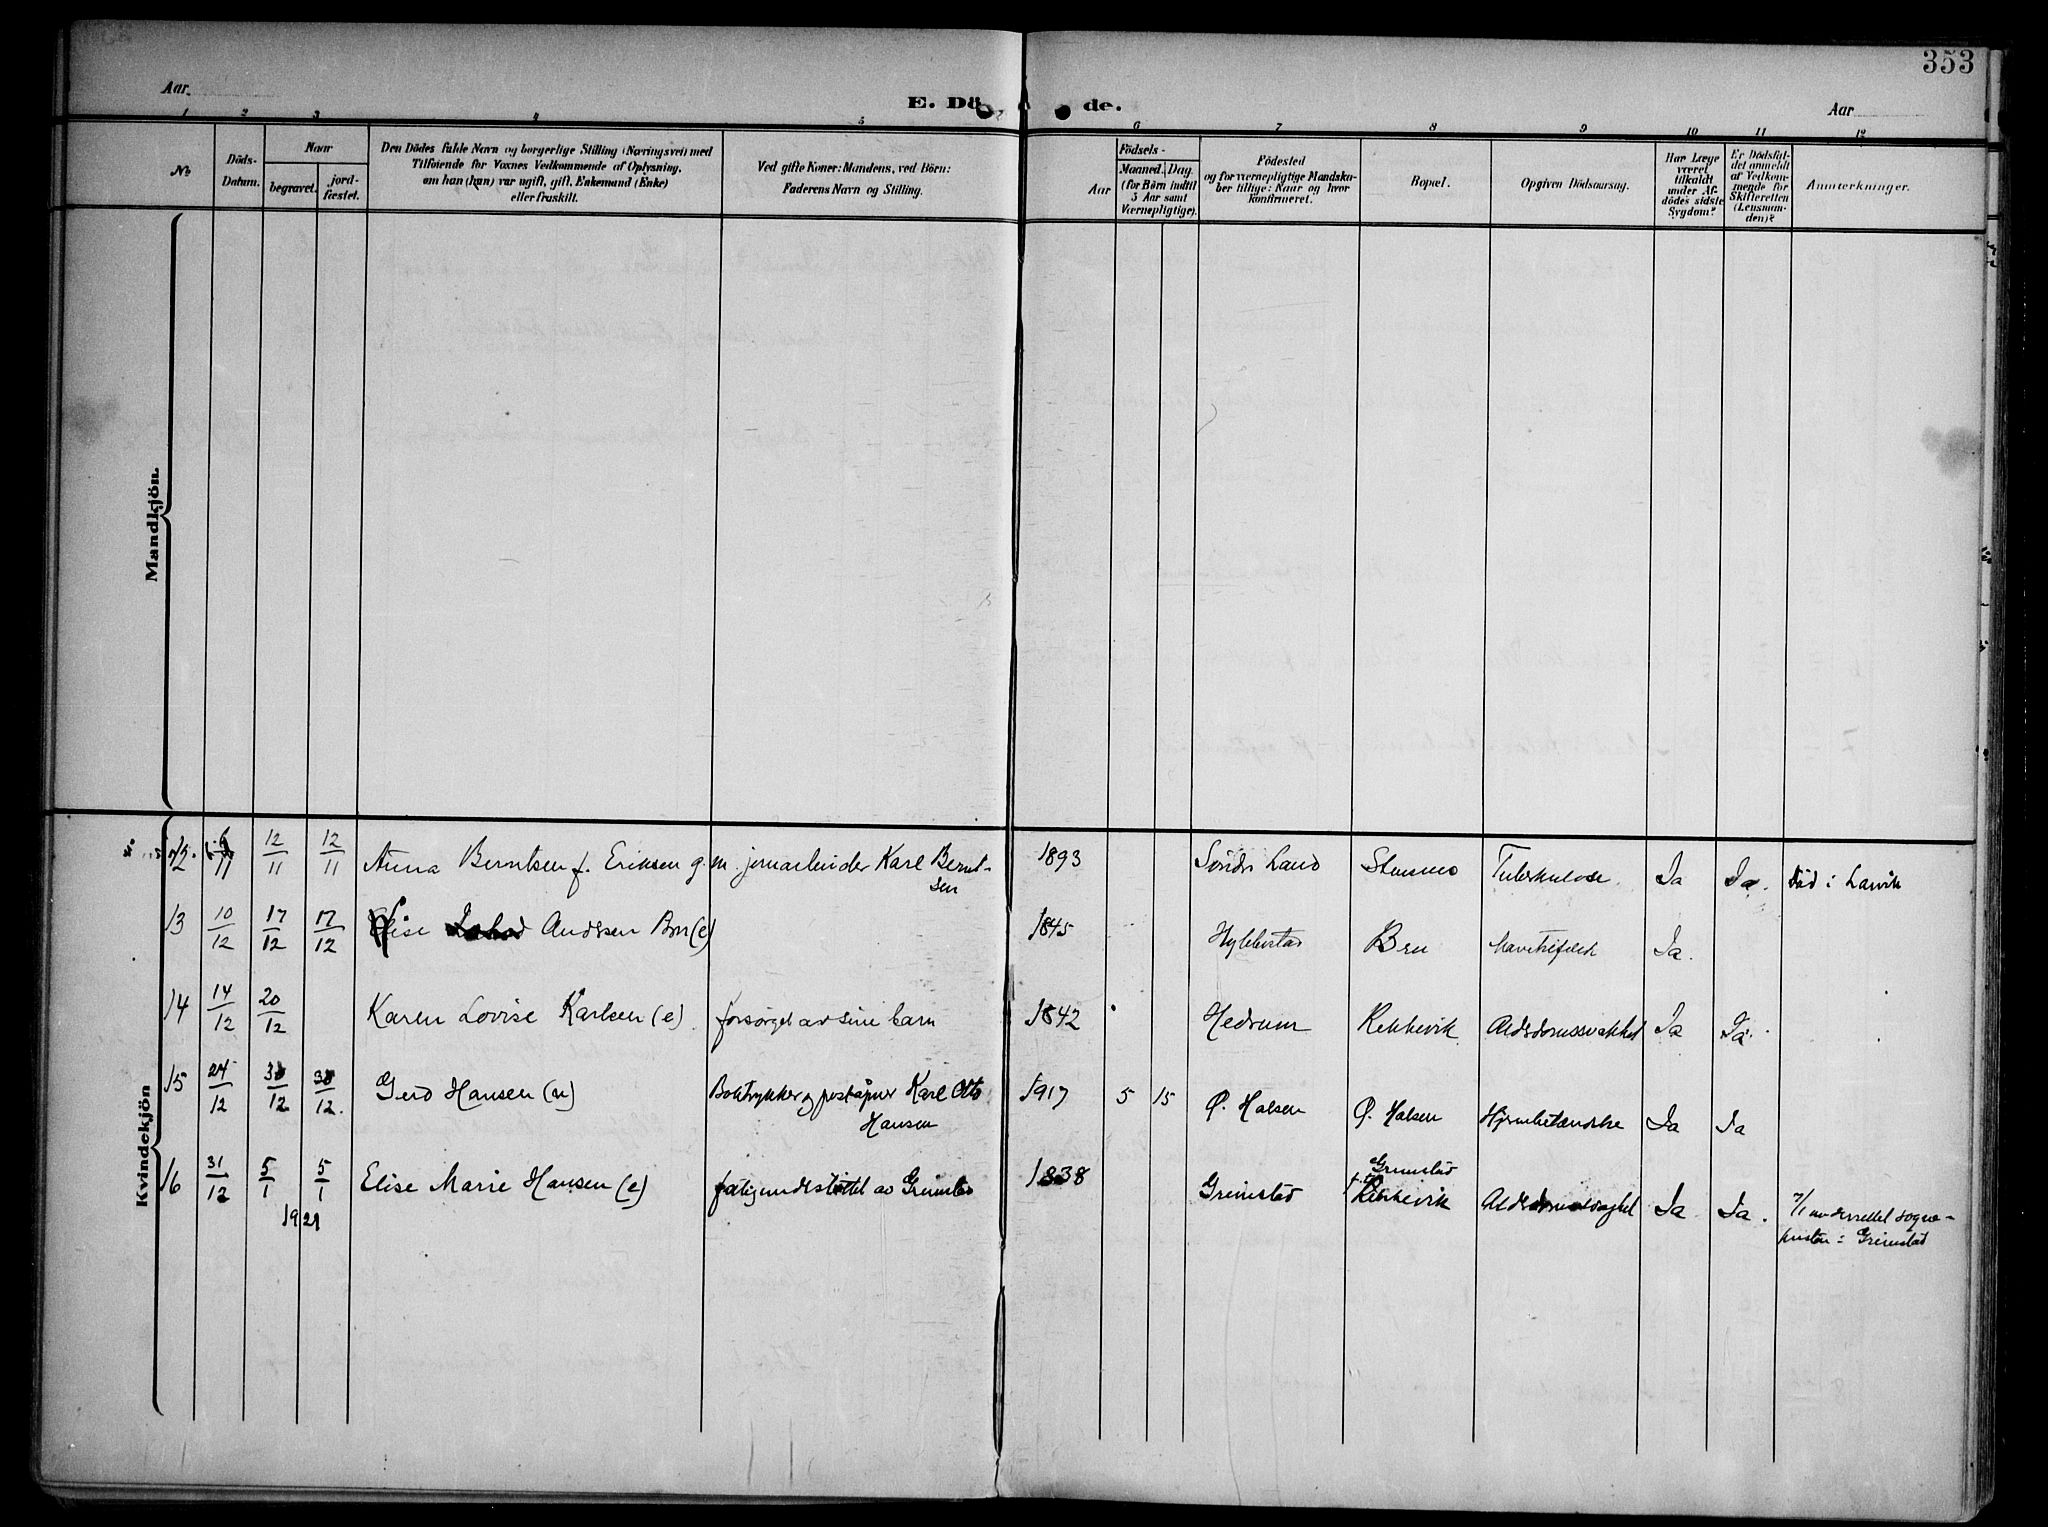 353
Aar
E. Dö de.
Aar
1 2 3 4 5 6 7 8 9 10 11 12
No
Döds-Datum.
Naar
begravet.
jord-fæstet.
Den Dödes fulde Navn og borgerlige Stilling (Næringsvei) med
Tilföiende for Voxnes Vedkommende af Oplysning,
om han (hun) var ugift, gift, Enkemand (Enke)
eller fraskilt.
Ved gifte Koner: Mandens, ved Börn:
Faderens Navn og Stilling.
Födsels-
Aar
Maaned. Dag.
(for Börn indtil
5 Aar samt
Værnepligtige).
Födested
og for værnepligtige Mandska-
ber tillige: Naar og hvor
konfirmeret.
Bopæl.
Opgiven Dödsaarsag.
Har Læge
været
tilkaldt
under Af-
dödes sidste
Sygdom?
Er Dödsfal-
det anmeldt
af Vedkom-
mende for
Skifteretten
(Lensman-
den)?
Anmerkninger.
Mandkjön.
Kvindekjön
12. 6/11 12/11 12/11 Anna Berntsen f. Eriksen g. m. jernarbeider Karl Bernt-
sen
1893 Söndre Land Stensmo Tuberkulose Ja Ja. Död i Larvik
13 10/12 17/12 17/12 Elise Andersen Bru (e) 1845 Hybbestad Bru Ja.
14 14/12 20/12 Karen Lovise Karlsen (e) forsörget av sine barn 1842 Hedrum Rekkevik Alderdomssvakhet Ja Ja.
15 24/12 30/12 30/12. Gerd Hansen (u) Boktrykker og poståpner Karl Otto
Hansen
1917 5 15 Ø. Halsen Ø. Halsen Hjernebetændelse Ja Ja
16 31/12 5/1 5/1 Elise Marie Hansen (e) fatigunderstöttet av Grimstad 1838 Grimstad Grimstad
Rekkevik Ja Ja. 7/1 underrettet sogne-
presten i Grimstad
1921